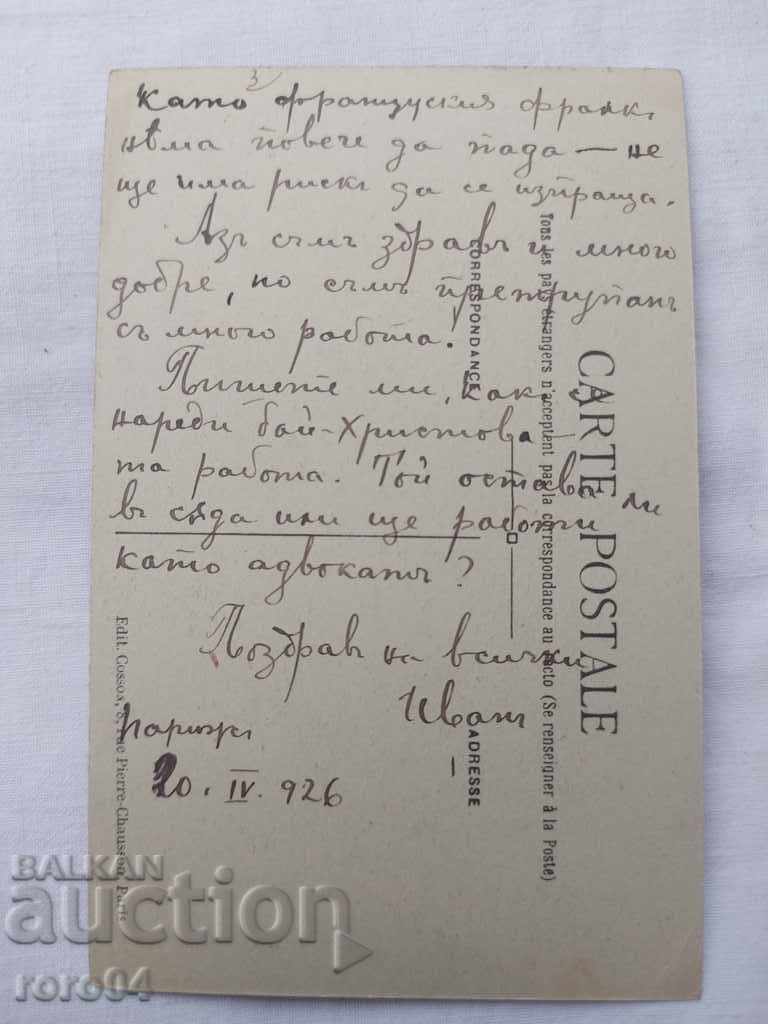 3)
Като французския франкъ
нѣма повече да пада — не
ще има рискъ да се изпраща.
Азъ съмъ здравъ и много
добре, но съмъ претрупанъ
съ много работа!
Пишете ми, какъ
нареди бай-Христова
та работа. Той остава ли
въ съда или ще работи
като адвокатъ?
Поздравъ на всички
Иванъ
Парижъ
20. IV. 926
CARTE POSTALE
Tous les pays étrangers n'acceptent pas la correspondance au recto (Se renseigner à la Poste)
CORRESPONDANCE
ADRESSE
Edit. Cosson, 8, rue Pierre-Chausson, Paris
BALKAN
auction
roro04